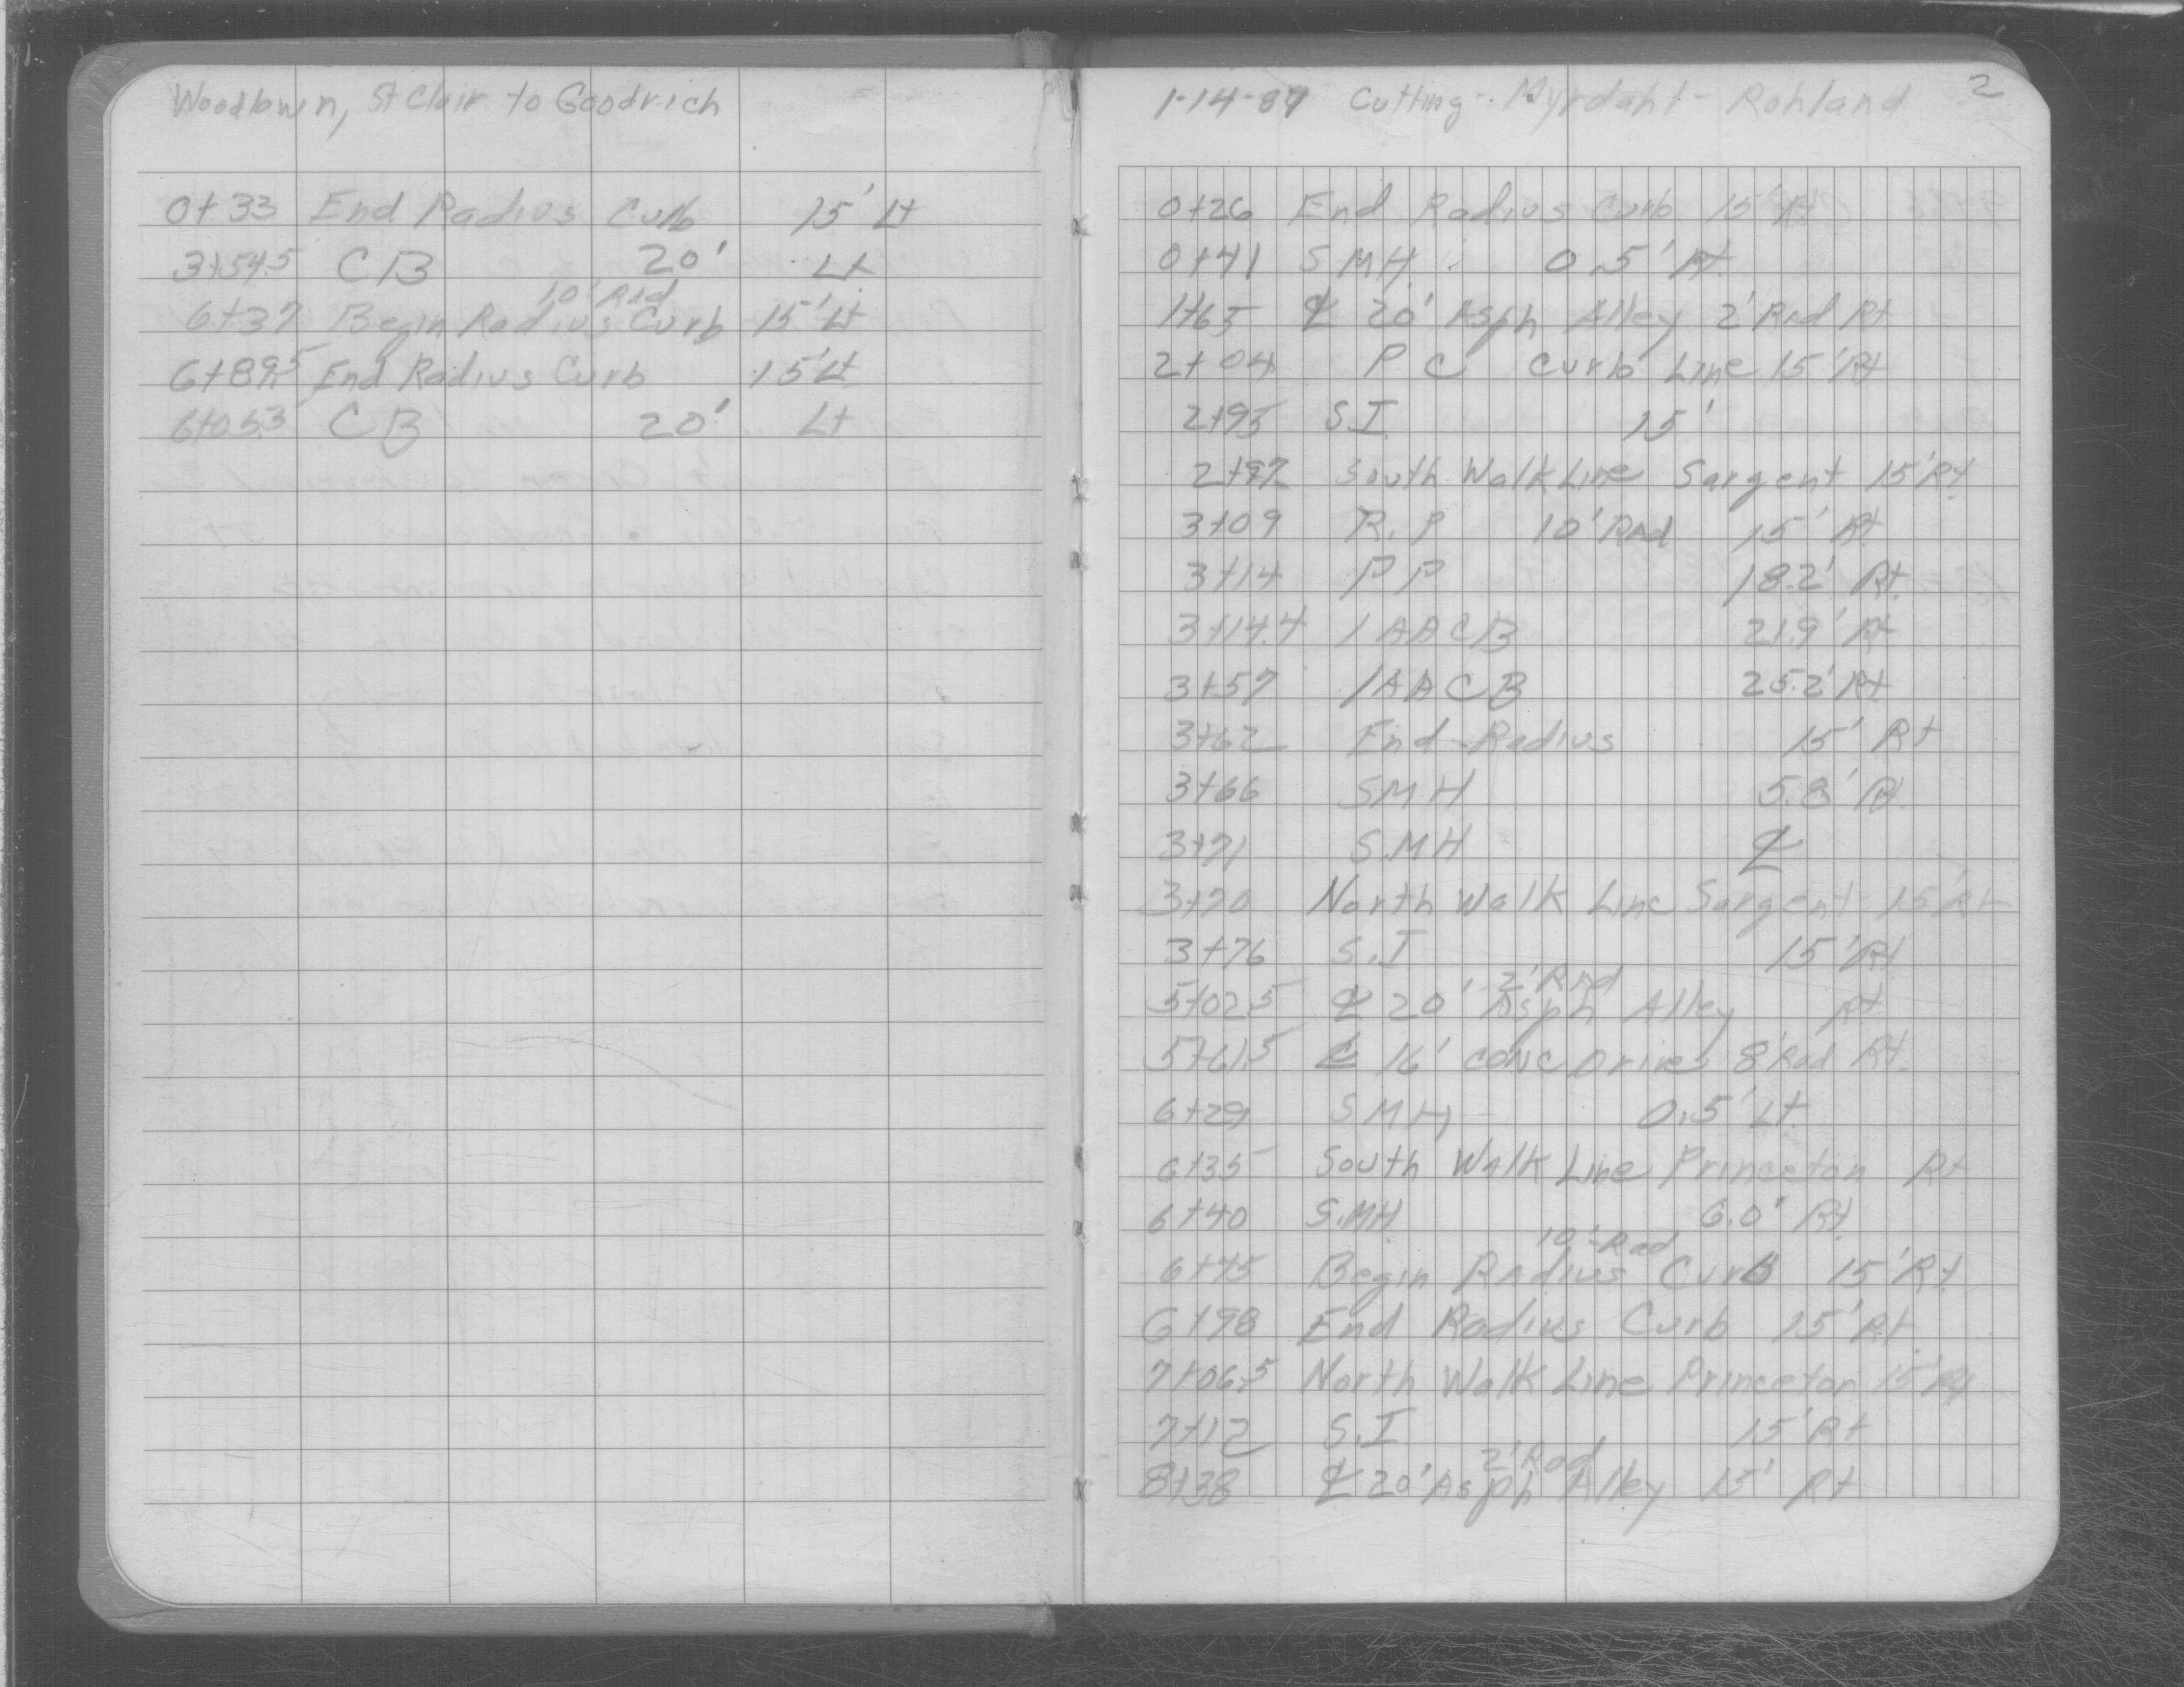 Woodlawn, St Clair to Goodrich
0+33 End Radius Curb 15' Lt
3+54.5 CB 20' Lt
10' Rad
6+37 Begin Radius Curb 15' Lt
6+89.5 End Radius Curb 15' Lt
CB 20' Lt
1-14-87 Cutting - Myrdahl - Rohland 2
0+26 End Radius Curb 15' Rt
0+41 SMH 0.5' Rt
1+65 ℄ 20' Asph Alley 2' Rad Rt
2+04 PC Curb Line 15' Rt
2+95 S.I. 15'
2+97 South Walk Line Sargent 15' Rt
3+09 R.P 10' Rad 15' Rt
3+14 PP 18.2' Rt
3+14.4 1AACB 21.9' Rt
3+57 1AACB 25.2' Rt
3+62 End Radius 15' Rt
3+66 SMH 5.8' Rt
3+71 S.MH ℄
3+70 North Walk Line Sargent 15' Rt
3+76 S.I 15' Rt
2' Rad
5+02.5 ℄ 20' Asph Alley Rt
5+61.5 ℄ 16' conc Drive 8' Rad Rt
6+29 SMH 0.5' Lt
6+35 South Walk Line Princeton Rt
6+40 S.MH 6.0' Rt
10' Rad
6+45 Begin Radius Curb 15' Rt
6+98 End Radius Curb 15' Rt
7+06.5 North Walk Line Princeton 15' Rt
7+12 S.I. 15' Rt
2' Rad
8+38 ℄ 20' Asph Alley 15' Rt